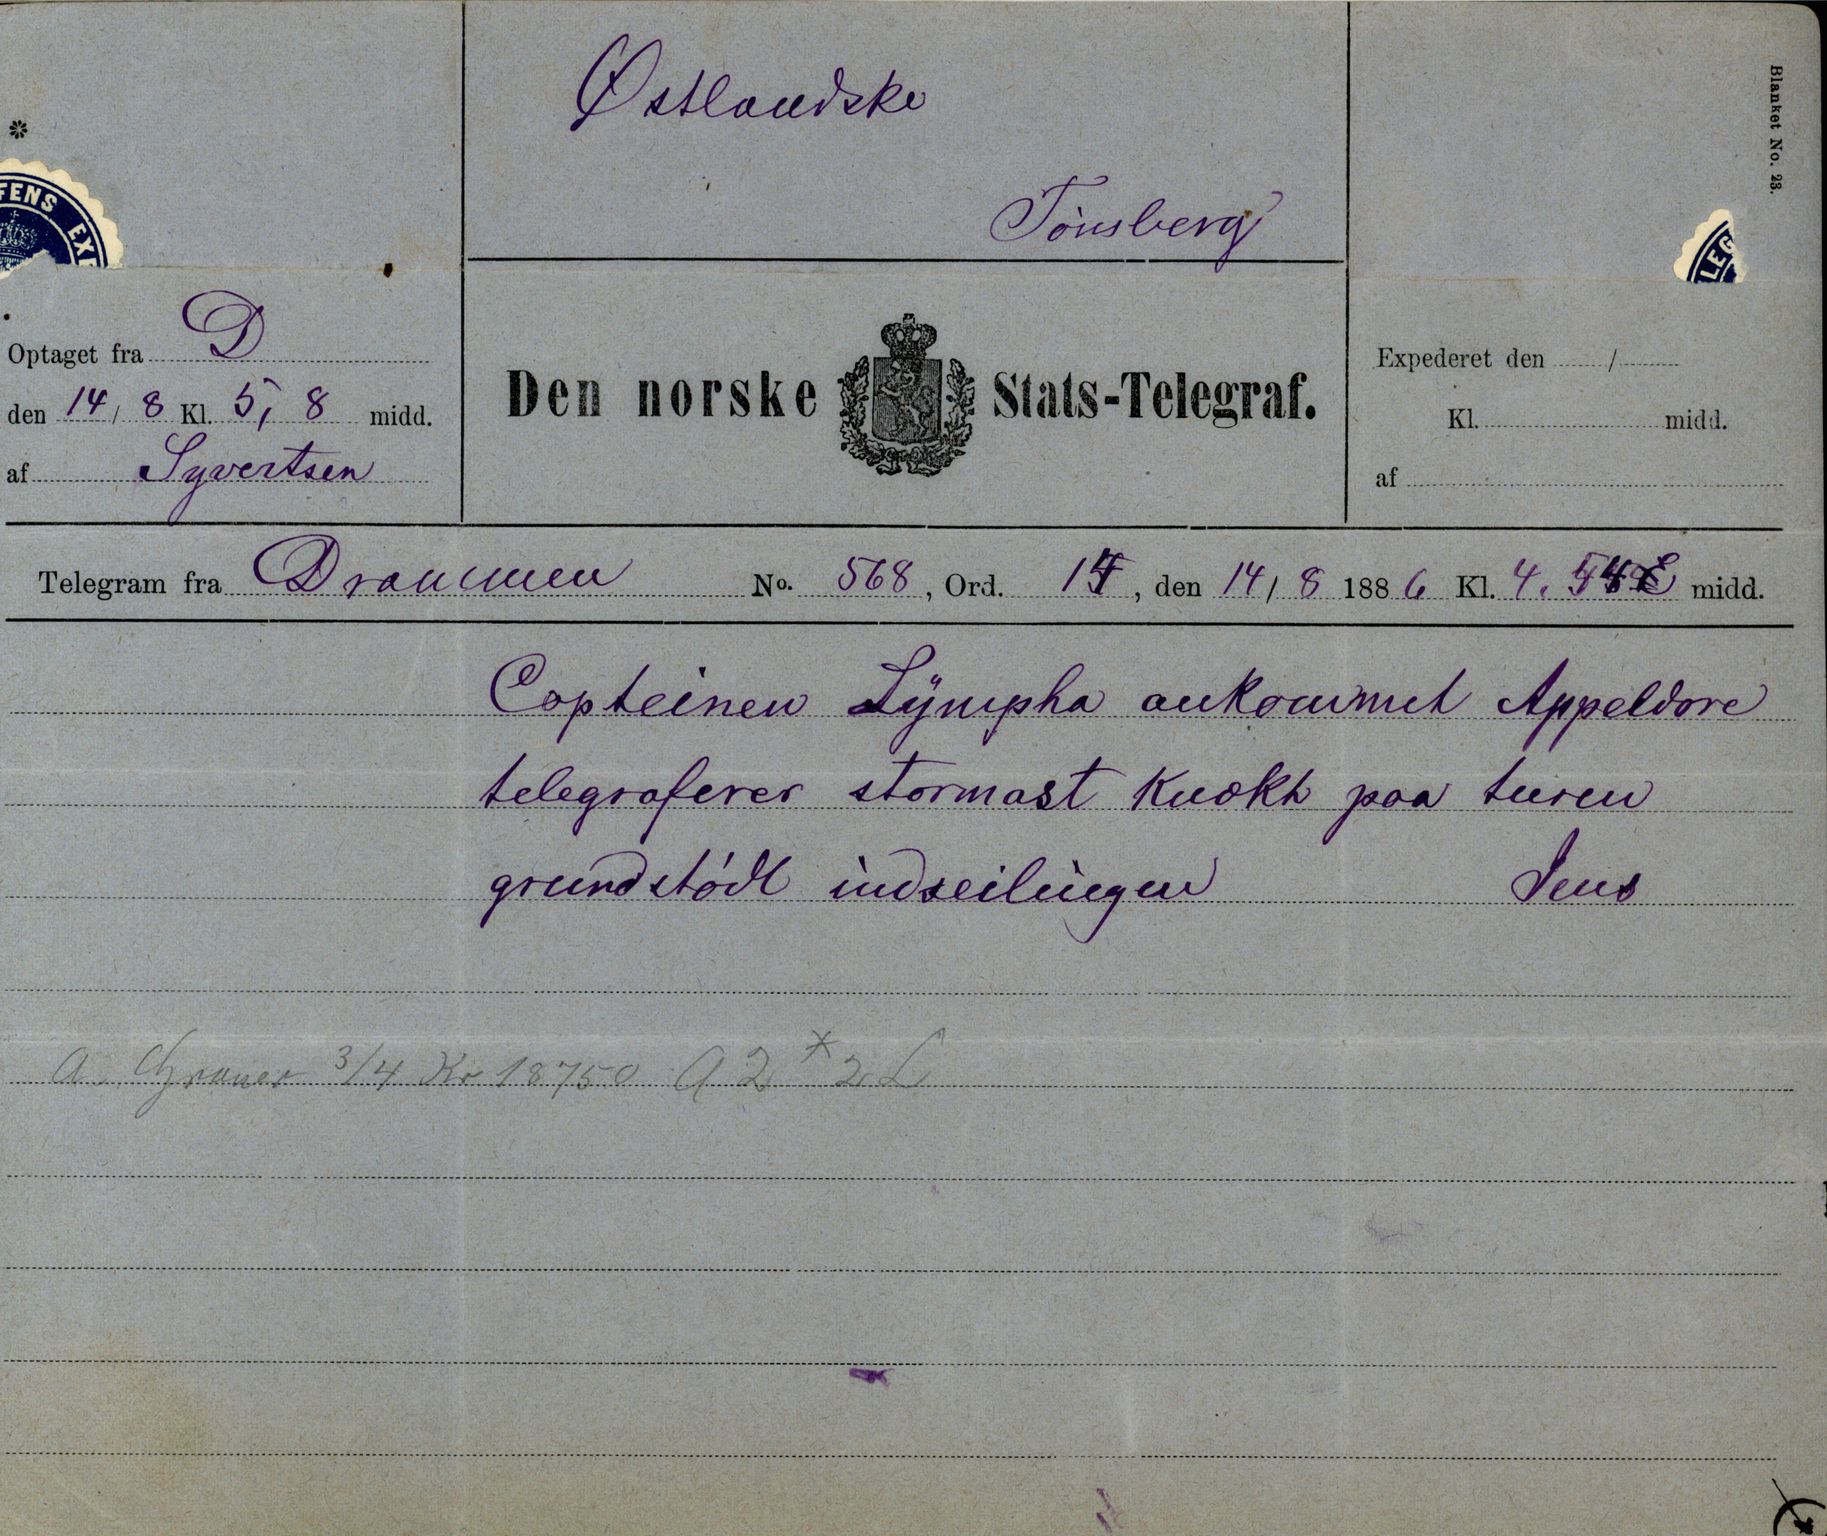 Østlandske
Tönsberg
Blanket No. 23.
*
FENS EX
LEG
Optaget fra D
den 14/8 Kl. 5,8 midd.
af Syvertsen
Den norske Stats-Telegraf.
Expederet den /
Kl. midd.
af
Telegram fra Drammen No. 568, Ord. 14, den 14/8 1886 Kl. 4. midd.
Capteinen Lÿmpha ankommet Appeldore
telegraferer stormast knækt paa turen
grundstødt indseilingen Jens
A. 3/4 Kr 18750 A 2 * 2 L